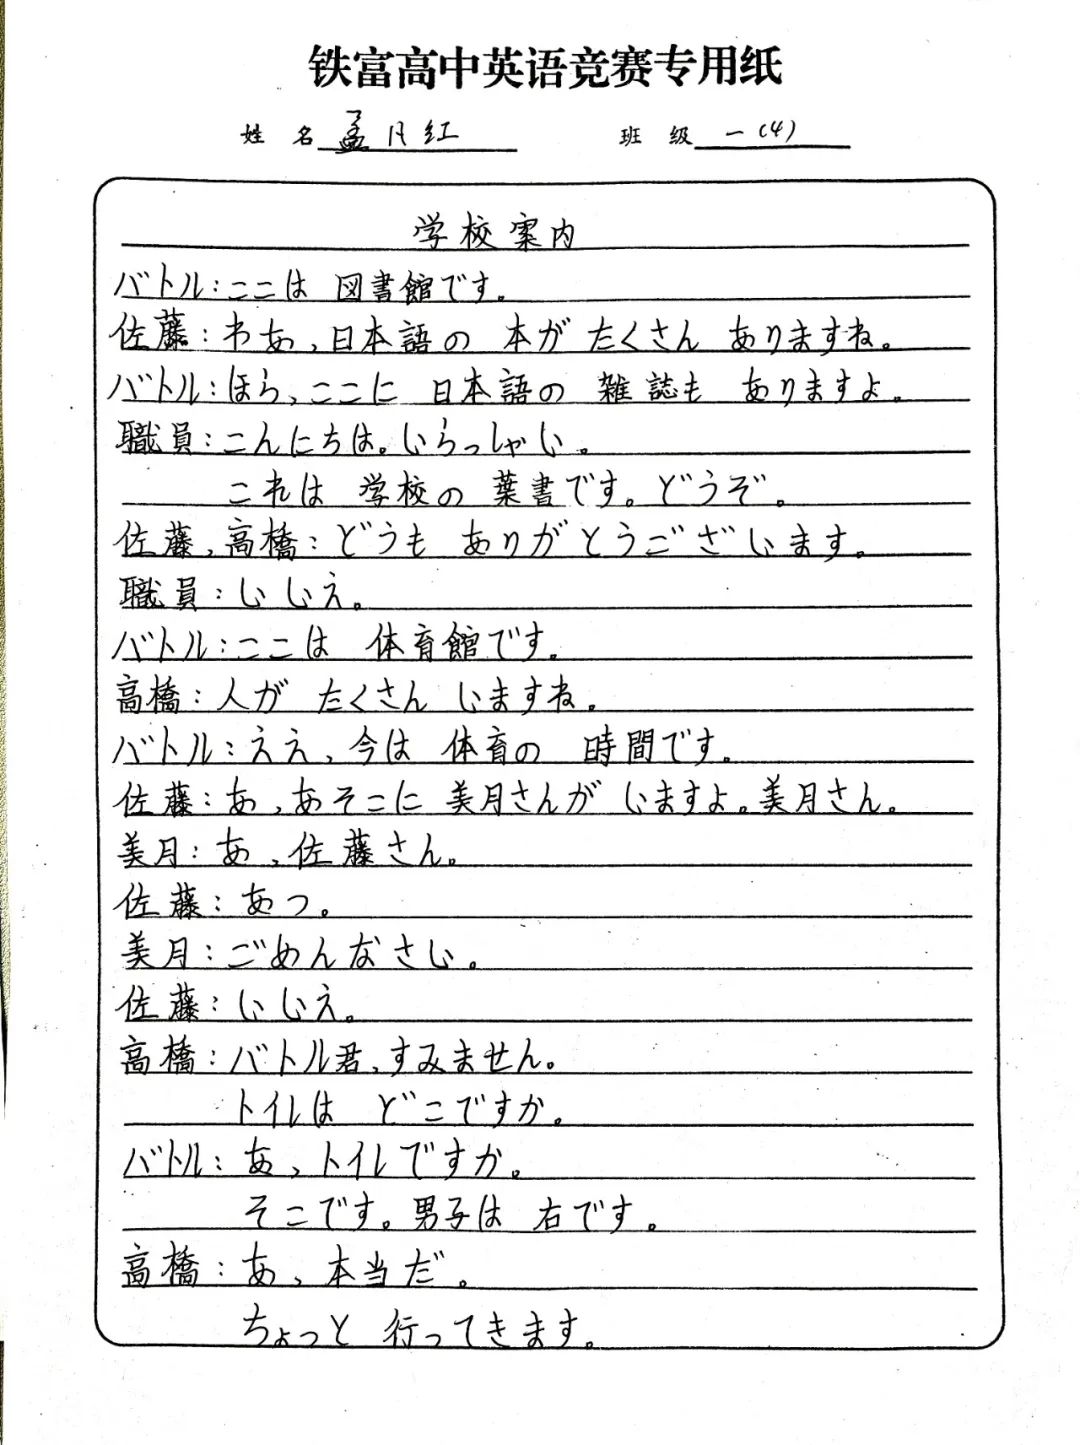 铁富高中英语竞赛专用纸
姓 名 孟月红 班 级 一(4)
学校案内
バトル:ここは 図書館です。
佐藤:わあ、日本語の 本が たくさん ありますね。
バトル:ほら、ここに 日本語の 雑誌も ありますよ。
職員:こんにちは。いらっしゃい。
これは 学校の 葉書です。どうぞ。
佐藤、高橋:どうも ありがとうございます。
職員:いいえ。
バトル:ここは 体育館です。
高橋:人が たくさん いますね。
バトル:ええ、今は 体育の 時間です。
佐藤:あ、あそこに 美月さんが いますよ。美月さん。
美月:あ、佐藤さん。
佐藤:あっ。
美月:ごめんなさい。
佐藤:いいえ。
高橋:バトル君、すみません。
トイレは どこですか。
バトル:あ、トイレですか。
そこです。男子は 右です。
高橋:あ、本当だ。
ちょっと 行ってきます。